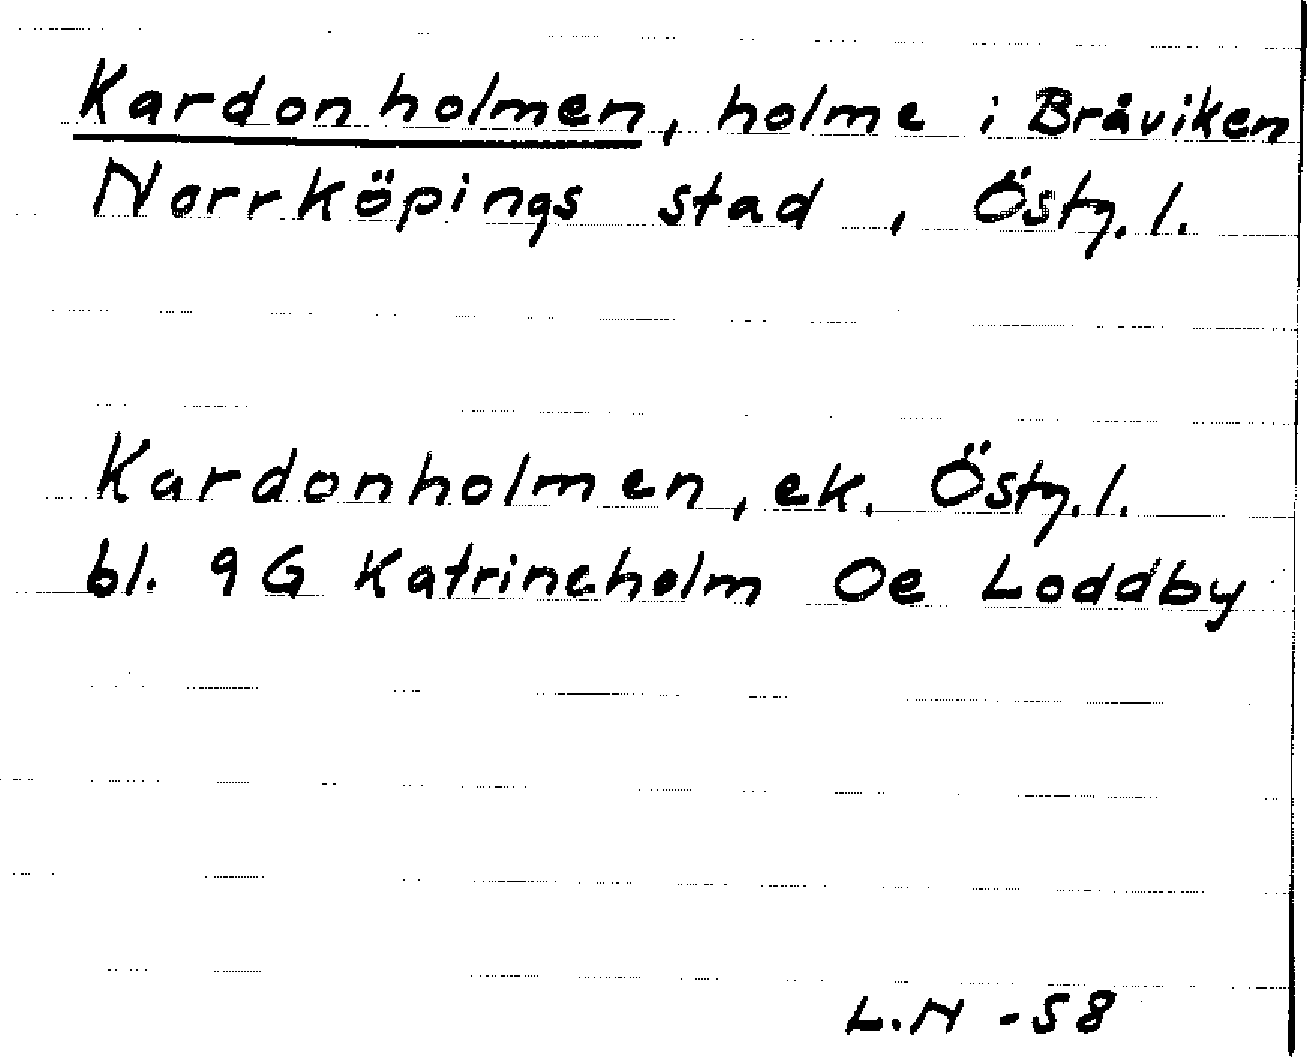 Kardonholmen, holme i Bråviken
Norrköpings stad, Östg.l.
Kardonholmen, ek. Östg.l.
bl. 9G Katrineholm Oe Loddby
L.N -58